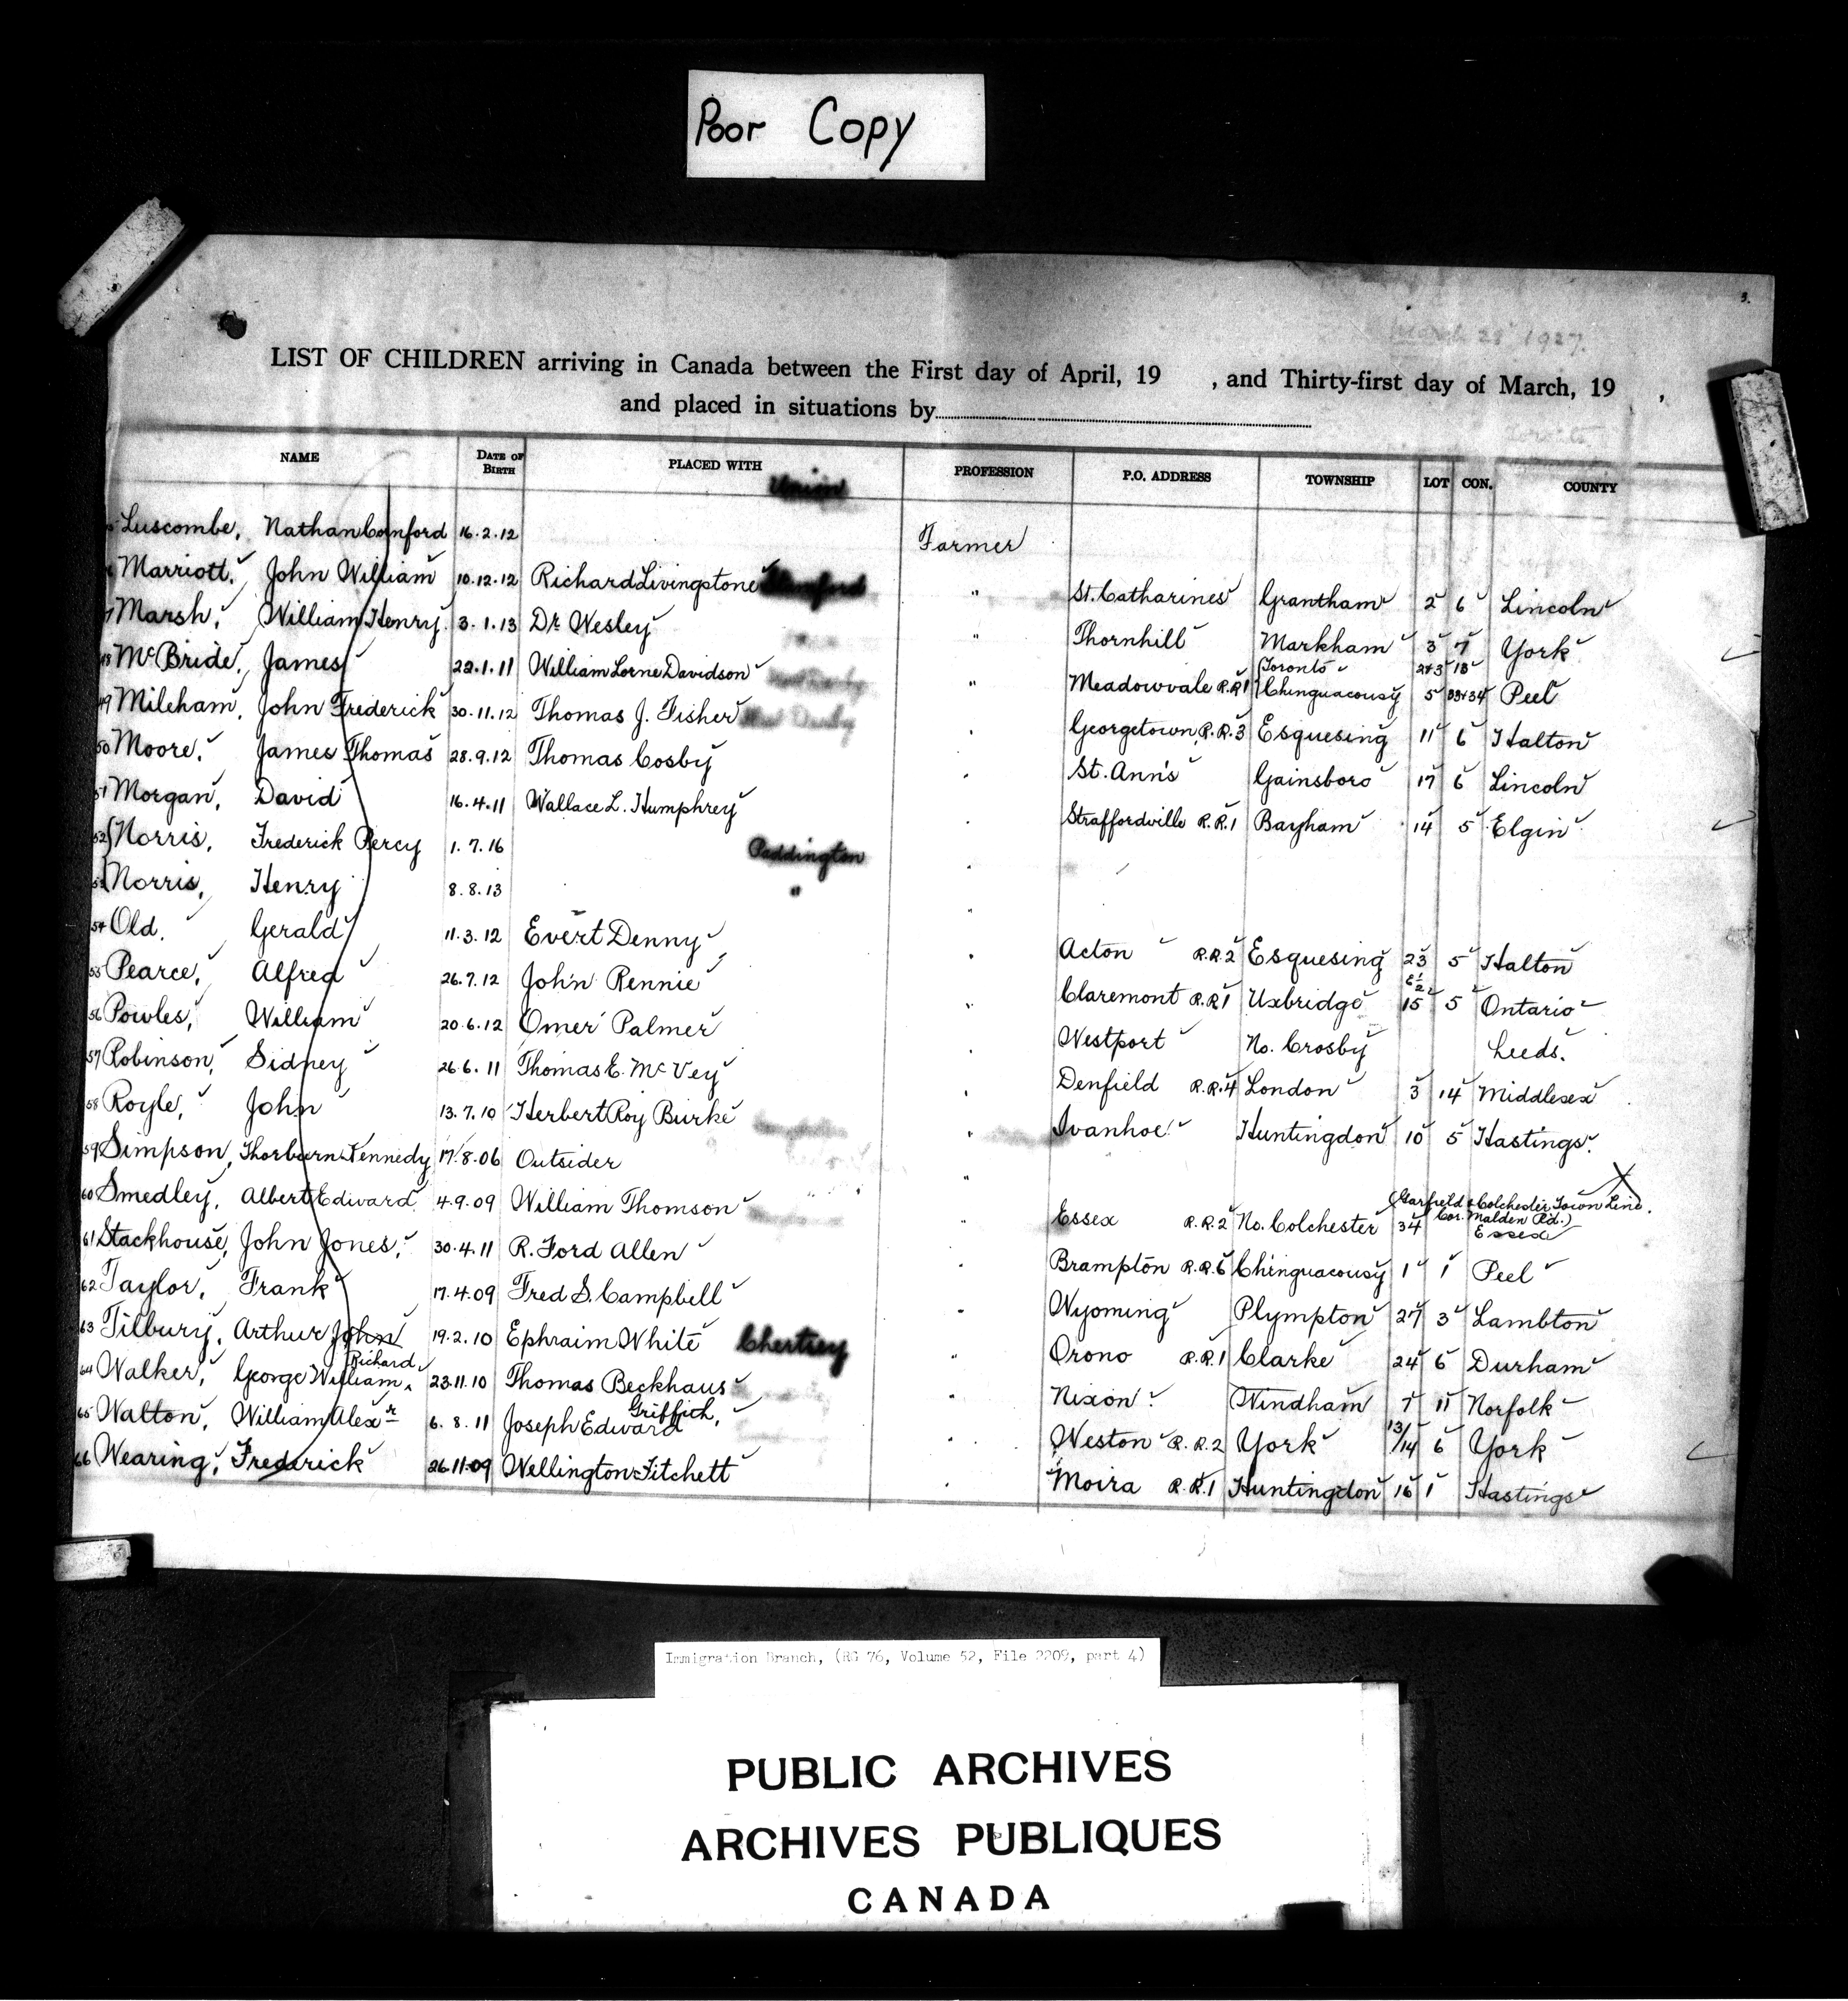 Poor Copy
3.
March 28 1927.
LIST OF CHILDREN arriving in Canada between the First day of April, 19 , and Thirty-first day of March, 19 ,
and placed in situations by
NAME DATE OF BIRTH PLACED WITH PROFESSION P.O. ADDRESS TOWNSHIP LOT CON. COUNTY
Union
Luscombe, Nathan Cornford 16.2.12 Farmer
Marriott, John William 10.12.12 Richard Livingstone " St. Catharines Grantham 2 6 Lincoln
Marsh, William Henry 3.1.13 Dr. Wesley " Thornhill Markham 3 7 York
48 McBride, James 22.1.11 William Lorne Davidson " Meadowvale R.R.1 {Toronto 2+3 13 {Chinguacousy 5 33+34 Peel
49 Mileham, John Frederick 30.11.12 Thomas J. Fisher " Georgetown, R.R.3 Esquesing 11 6 Halton
50 Moore, James Thomas 28.9.12 Thomas Cosby " St. Ann's Gainsboro 17 6 Lincoln
51 Morgan, David 16.4.11 Wallace L. Humphrey " Straffordville R.R.1 Bayham 14 5 Elgin
52 {Norris, Frederick Percy 1.7.16 Paddington "
53 {Norris, Henry 8.8.13 " "
54 Old, Gerald 11.3.12 Evert Denny " Acton R.R.2 Esquesing 23 5 Halton
55 Pearce, Alfred 26.7.12 John Rennie " Claremont R.R.1 Uxbridge E½ 15 5 Ontario
56 Powles, William 20.6.12 Omer Palmer " Westport No. Crosby Leeds.
57 Robinson, Sidney 26.6.11 Thomas E. McVey " Denfield R.R.4 London 3 14 Middlesex
58 Royle, John 13.7.10 Herbert Roy Burke " Ivanhoe Huntingdon 10 5 Hastings.
59 Simpson, Thorburn Kennedy 17.8.06 Outsider "
60 Smedley, Albert Edward 4.9.09 William Thomson " Essex R.R.2 No. Colchester 34 (Garfield & Colchester Town Line. Cor. Malden Rd.) Essex
61 Stackhouse, John Jones, 30.4.11 R. Ford Allen " Brampton R.R.6 Chinguacousy 1 1 Peel
62 Taylor, Frank 17.4.09 Fred S. Campbell " Wyoming Plympton 27 3 Lambton
63 Tilbury, Arthur John 19.2.10 Ephraim White Chertsey " Orono R.R.1 Clarke 24 6 Durham
64 Walker, George William Richard 23.11.10 Thomas Beckhaus " Nixon Windham 7 11 Norfolk
65 Walton, William Alexr 6.8.11 Joseph Edward Griffith, " Weston R.R.2 York 13/14 6 York
66 Wearing, Frederick 26.11.09 Wellington Fitchett " Moira R.R.1 Huntingdon 16 1 Hastings
Immigration Branch, (RG 76, Volume 52, File 2209, part 4)
PUBLIC ARCHIVES
ARCHIVES PUBLIQUES
CANADA